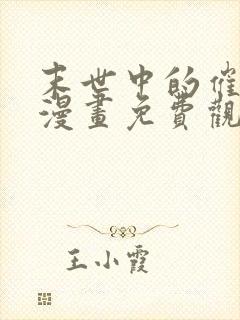 末世中的催
漫畫免費觀
王小霞